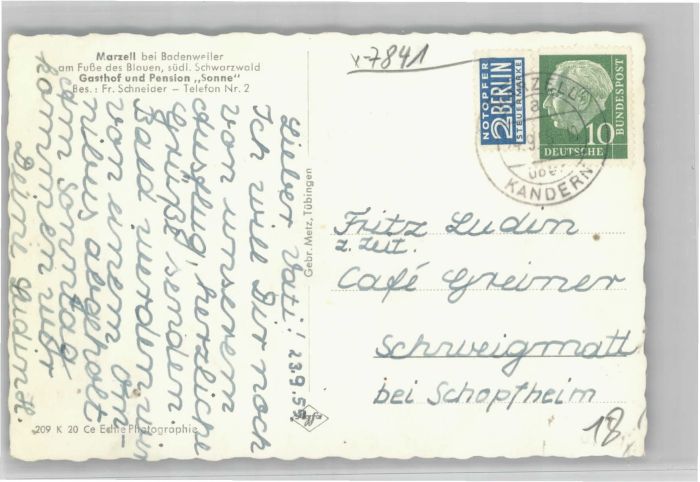 Marzell bei Badenweiler
am Fuße des Blauen, südl. Schwarzwald
Gasthof und Pension „Sonne"
Bes.: Fr. Schneider — Telefon Nr. 2
7841
NOTOPFER
2 BERLIN
STEUERMARKE
10
DEUTSCHE
BUNDESPOST
KANDERN
Lieber Vati! 23.9.55.
Ich will Dir noch
von unserem
Ausflug herzliche
Grüße senden.
Bald werden wir
von einem Om-
nibus abgeholt.
Am Sonntag
kommen wir
Deine
Gebr. Metz, Tübingen
Fritz Ludin
z. Zeit.
Café Greiner
Schweigmatt
bei Schopfheim
18
209 K 20 Ce Echte Photographie
Agfa